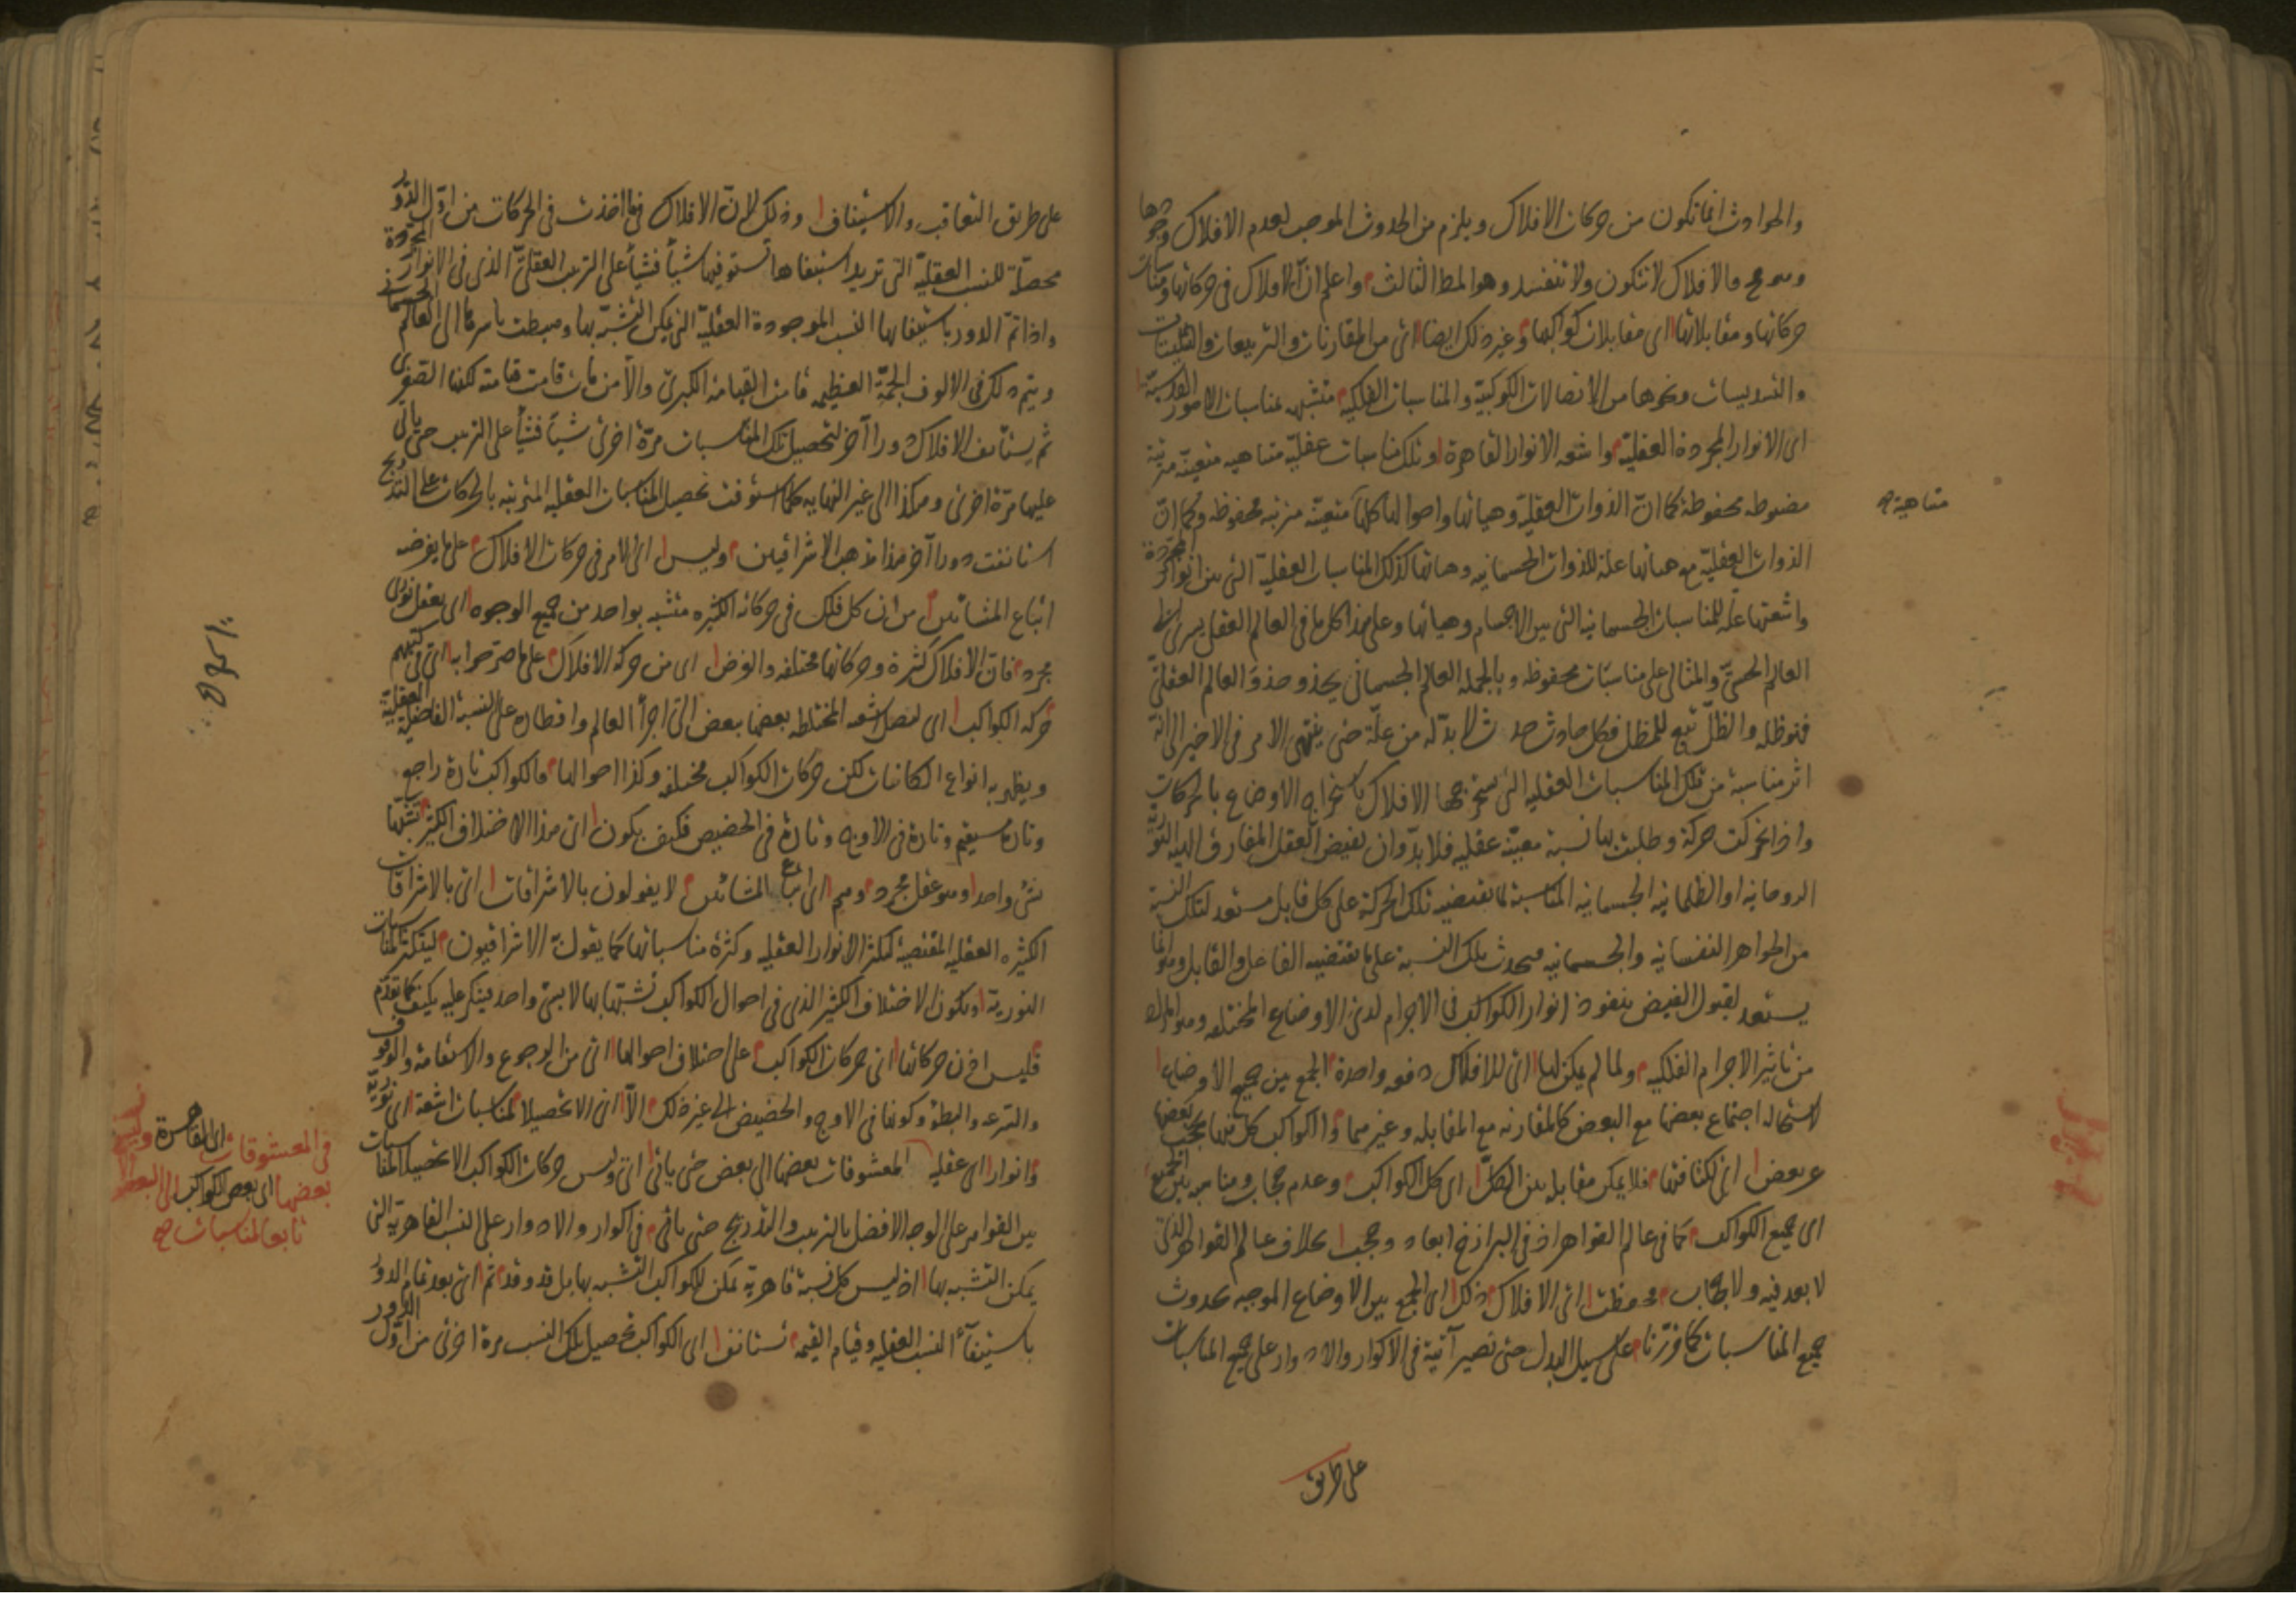 والحوادث انما تكون من حركات الافلاك ويلزم من الحدوث الموجب لعدم الافلاك وجودها
وهو مح فالافلاك لا تتكون ولا تنفسد وهو المط الثالث واعلم ان الافلاك في حركاتها ومناسبات
حركاتها ومقابلاتها اى مقابلات كواكبها وغير ذلك ايضا اى من المقارنات والتربيعات والتثليثات
والتسديسات ونحوها من الاتصالات الكوكبية والمناسبات الفلكية متشبهه بمناسبات الامور القدسية
اى الانوار المجردة العقلية واشعه الانوار القاهرة وتلك مناسبات عقلية متناهيه متعينة مترتبة
مضبوطه محفوظة كما ان الذوات العقلية وهيئاتها واحوالها كلها متعينة مترتبه محفوظه وكما ان
متناهية صح
الذوات العقلية مع هيئاتها علة للذوات الجسمانيه وهيئاتها كذلك المناسبات العقلية التى بين انوار المجردة
واشعتها علة للمناسبات الجسمانيه التى بين الاجسام وهيئاتها وعلى هذا كل ما فى العالم العقلى يسرى الى
العالم الحسى والمثالى على مناسبات محفوظه وبالجملة العالم الجسمانى يحذو حذو العالم العقلى
فهو ظله والظل تبع للمظل فكل حادث حدث لا بد له من علة حتى ينتهى الامر فى الاخير الى انه
اثر مناسبة من تلك المناسبات العقليه التى تستخرجها الافلاك باستخراج الاوضاع بالحركات
واذا تحركت حركة وطلبت بها نسبة معينة عقليه فلا بد وان يفيض العقل المفارق الهيئه النورية
الروحانيه او الظلمانيه الجسمانيه المناسبة لما تقتضيه تلك الحركة على كل قابل مستعد لتلك النسبة
من الجواهر النفسانيه والجسمانيه فيحدث بتلك النسبة على ما يقتضيه الفاعل والقابل وانما
يستعد لقبول الفيض بنفوذ انوار الكواكب فى الاجرام لدى الاوضاع المختلفه وهو المراد
من تاثير الاجرام الفلكيه ولما لم يكن لها اى للافلاك دفعه واحدة الجمع بين جميع الاوضاع
لاستحاله اجتماع بعضها مع البعض كالمقارنه مع المقابله وغيرهما والكواكب كل منها يحجب بعضها
عن بعض اى لكثافتها فلا يمكن مقابله بين الكل اى كل الكواكب وعدم حجاب ومناسبه بين الجميع
اى جميع الكواكب كما فى عالم القواهر اذ فى البرازخ ابعاد وحجب بخلاف عالم القواهر الذى
لا بعد فيه ولا حجاب فحفظت اى الافلاك ذلك اى الجمع بين الاوضاع الموجبه لحدوث
جميع المناسبات كما قررنا على سبيل البدل حتى تصير آتية فى الاكوار والادوار على جميع المناسبات
على طريق
على طريق التعاقب والاستيناف وذلك لان الافلاك فيما اخذت فى الحركات من اول الدور
محصلة للنسب العقلية التى تريد استيفاها تستوفيها شيئا فشيئا على الترتيب العقلى الذى فى الانوار المجردة
واذا تم الدور باستيفائها النسب الموجودة العقلية التى يمكن التشبه بها وهبطت باسرها الى العالم الجسمانى
ويتم ذلك فى الالوف الجمة العظيمه قامت القيامة الكبرى والا من مات قامت قيامته لكنها الصغرى
ثم يستانف الافلاك دورا آخر لتحصيل تلك المناسبات مرة اخرى شيئا فشيئا على الترتيب حتى ياتى
عليها مرة اخرى وهكذا الى غير النهايه كلما استوفت تحصيل المناسبات العقليه المترتبه بالحركات على التدريج
استانفت دورا آخر هذا مذهب الاشراقيين وليس اى الامر فى حركات الافلاك على ما يفرضه
اتباع المشائين من ان كل فلك فى حركاته الكثيره متشبه بواحد من جميع الوجوه اى بعقل نورى
مجرد فان الافلاك كثيرة وحركاتها مختلفه والغرض اى من حركة الافلاك على ما صرحوا به اى فى كتبهم
حركه الكواكب اى لتصل اشعه المختلطه بعضها ببعض الى اجزاء العالم واقطاره على النسبة الفاضلة العقلية
ويظهر به انواع الكائنات لكن حركات الكواكب مختلفه وكذا احوالها فالكواكب تارة راجع
وتارة مستقيم وتارة فى الاوج وتارة فى الحضيض فكيف يكون اى هذا الاختلاف الكثير تشبها
بشى واحد وهو عقل مجرد وهم اى اتباع المشائين لا يقولون بالاشراقات اى بالاشراقات
الكثيره العقليه المقتضية لتكثر الانوار العقليه وكثرة مناسباتها كما يقول به الاشراقيون ليتكثر المناسبات
النورية ويكون الاختلاف الكثير الذى فى احوال الكواكب تشبها بها لا بشى واحد فينكر عليه بكيف كما تقدم
فليس اذن حركاتها اى حركات الكواكب على اختلاف احوالها اى من الرجوع والاستقامة والوقوف
والسرعه والبطؤ وكونها فى الاوج والحضيض الى غير ذلك الا اى الا تحصيلا لمناسبات اشعة اى نورية
وانوار اى عقليه المعشوقات بعضها الى بعض حتى ياتى اى وليس حركات الكواكب الا تحصيل المناسبات
فى المعشوقات اى القاهرة ونسبة
بعضها اى بعض الكواكب الى البعض
تابع لمناسبات صح
بين القواهر على الوجه الافضل بالترتيب والتدريج حتى ياتى فى اكوار والادوار على النسب القاهرية التى
يمكن التشبه بها اذ ليس كل نسبة قاهرية يمكن للكواكب التشبه بها بل قد وقد ثم اى بعد تمام الدور
باستيفاء النسب العقليه وقيام القيمه تستانف اى الكواكب تحصيل تلك النسب مرة اخرى من اول الدور